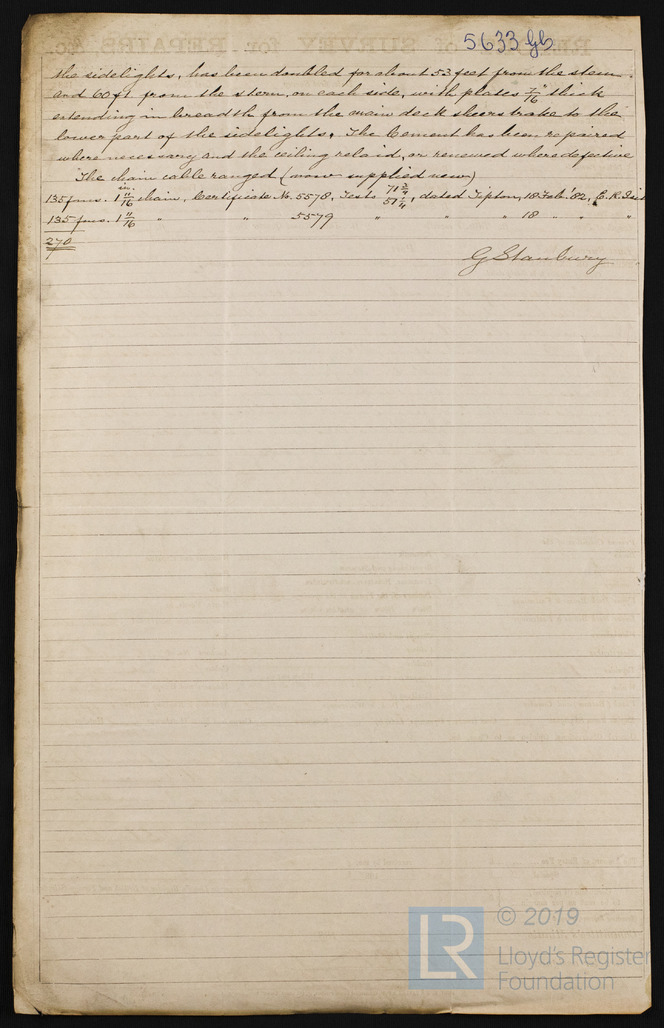 5633 Gb
the sidelights, has been doubled for about 53 feet from the stem
and 60 ft from the stern, on each side, with plates 7/16" thick
extending in breadth from the main deck sheerstrake to the
lower part of the sidelights. The Cement has been repaired
where necessary and the ceiling relaid, or renewed where defective
The chain cable ranged (now supplied new)
135 fms. 1 11/16 in. chain, Certificate No. 5578, Tests 71 3/4 51 1/4, dated Tipton, 18 Feb. '82, C. R.
135 fms. 1 11/16 " " 5579 " " " 18 " " "
270
G Stanbury
© 2019
LR
Lloyd's Register
Foundation